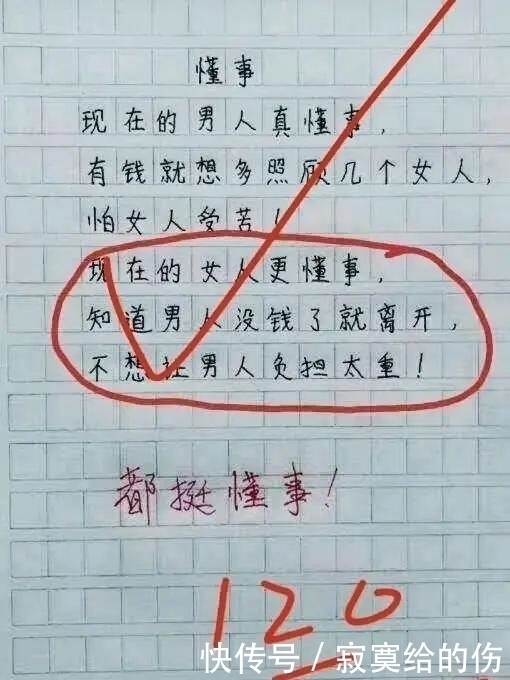 懂事
现在的男人真懂事,
有钱就想多照顾几个女人,
怕女人受苦!
现在的女人更懂事,
知道男人没钱了就离开,
不想让男人负担太重!
都挺懂事!
120
快传号 / 寂寞给的伤